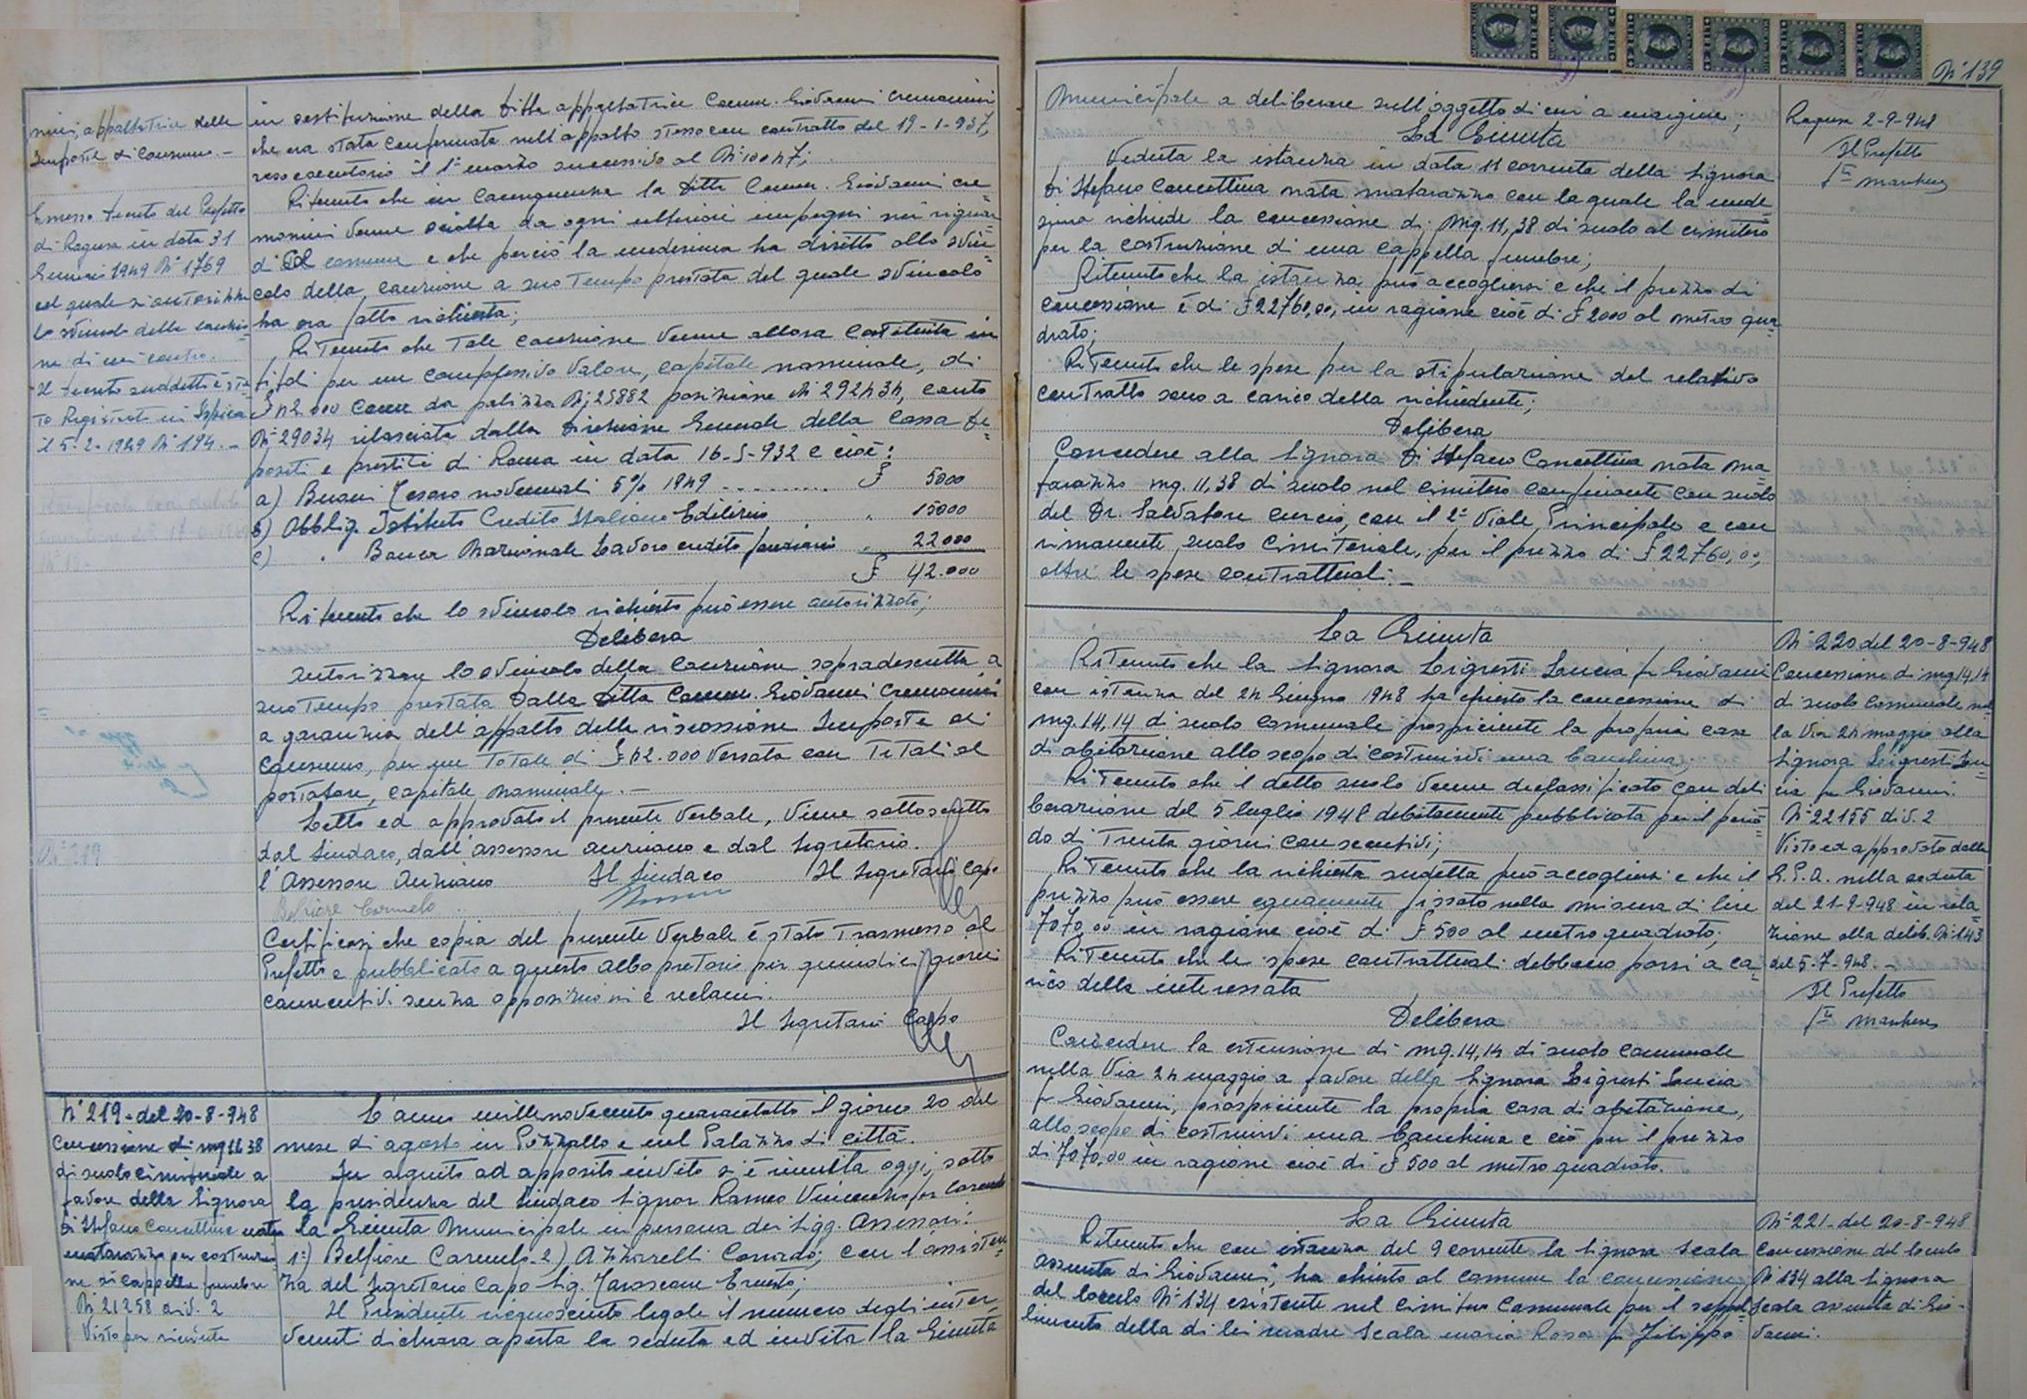 nini, appaltatrice delle
imposte di consumo. -
Emesso decreto del Prefetto
di Ragusa in data 31
Gennaio 1949 N° 1769
col quale si autorizza
lo svincolo della cauzio=
ne di cui contro.
Il decreto suddetto è sta=
to Registrato in Ispica
il 5-2-1949 N° 194. -
in sostituzione della ditta appaltatrice Comm. Giovanni Cremonini
che era stata confermata nell'appalto stesso con contratto del 19-1-937,
reso esecutorio il 1° marzo successivo al N° 10047;
Ritenuto che in conseguenza la ditta Comm. Giovanni Cre=
monini venne sciolta da ogni ulteriore impegni nei riguar=
di del comune e che perciò la medesima ha diritto allo svin=
colo della cauzione a suo tempo prestata del quale svincolo
ha ora fatto richiesta;
Ritenuto che tale cauzione venne allora costituita in
titoli per un complessivo valore, capitale nominale, di
£ 42.000 come da polizza N° 25882 posizione N° 292434, conto
N° 29034 rilasciata dalla Direzione Generale della Cassa De=
positi e prestiti di Roma in data 16-5-932 e cioè:
a) Buoni Tesoro novennali 5% 1949 .......... £ 5000
b) Obblig. Istituto Credito Italiano Edilizio " 15000
c) " Banca Nazionale Lavoro credito fondiario " 22000
£ 42.000
Ritenuto che lo svincolo richiesto può essere autorizzato;
Delibera
Autorizzare lo svincolo della cauzione sopradescritta a
suo tempo prestata dalla ditta Comm. Giovanni Cremonini
a garanzia dell'appalto della riscossione Imposte di
consumo, per un totale di £ 42.000 versata con Titoli al
portatore, capitale nominale. -
Letto ed approvato il presente verbale, viene sottoscritto
dal Sindaco, dall'assessore anziano e dal Segretario.
L'Assessore Anziano Il Sindaco Il Segretario Capo
Belfiore Carmelo
Certificasi che copia del presente verbale è stato trasmesso al
Prefetto e pubblicato a questo albo pretorio per quindici giorni
consecutivi senza opposizioni e reclami.
Il Segretario Capo
N° 219 - del 20-8-948
Concessione di mq 11,38
di suolo cimiteriale a
favore della Signora
Di Stefano Concettina nata
Matarazzo per costruzio
ne di cappella funebre
N° 21258 div. 2
Visto per ricevuta
L'anno millenovecento quarantotto il giorno 20 del
mese di agosto in Pozzallo e nel Palazzo di città.
In seguito ad apposito invito si è riunita oggi, sotto
la presidenza del Sindaco Signor Rameo Vincenzo fu Carmelo
la Giunta Municipale in persona dei Sigg. Assessori:
1°) Belfiore Carmelo - 2) Azzarelli Corrado; con l'assisten=
za del Segretario Capo Sig. Tarascone Ernesto;
Il Presidente riconosciuto legale il numero degli inter=
venuti dichiara aperta la seduta ed invita la Giunta
N° 139
Municipale a deliberare sull'oggetto di cui a margine;
La Giunta
Veduta la istanza in data 11 corrente della Signora
Di Stefano Concettina nata Matarazzo con la quale la mede=
sima richiede la concessione di mq. 11,38 di suolo al cimitero
per la costruzione di una cappella funebre;
Ritenuto che la istanza può accogliersi e che il prezzo di
concessione è di £ 22760,00, in ragione cioè di £ 2000 al metro qua=
drato;
Ritenuto che le spese per la stipulazione del relativo
contratto sono a carico della richiedente;
Delibera
Concedere alla Signora Di Stefano Concettina nata Ma
tarazzo mq. 11,38 di suolo nel cimitero confinante con suolo
del Dr. Salvatore Curcio, con il 2° Viale Principale e con
rimanente suolo cimiteriale, per il prezzo di £ 22760,00,
oltre le spese contrattuali. -
Ragusa 2-9-948
Il Prefetto
La Giunta
Ritenuto che la Signora Ligresti Lucia fu Giovanni
con istanza del 24 Giugno 1948 ha chiesto la concessione di
mq. 14,14 di suolo comunale prospiciente la propria casa
di abitazione allo scopo di costruirvi una banchina;
Ritenuto che il detto suolo venne declassificato con deli
berazione del 5 luglio 1948 debitamente pubblicata per il perio=
do di trenta giorni consecutivi;
Ritenuto che la richiesta suddetta può accogliersi e che il
prezzo può essere equamente fissato nella misura di lire
7070,00 in ragione cioè di £ 500 al metro quadrato;
Ritenuto che le spese contrattuali debbono porsi a ca=
rico della interessata
Delibera
Concedere la estensione di mq. 14,14 di suolo comunale
nella Via 24 maggio a favore della Signora Ligresti Lucia
fu Giovanni, prospiciente la propria casa di abitazione,
allo scopo di costruirvi una banchina e ciò per il prezzo
di 7070,00 in ragione cioè di £ 500 al metro quadrato.
N° 220 del 20-8-948
Concessione di mq 14,14
di suolo comunale nel=
la Via 24 maggio alla
Signora Ligresti Lu=
cia fu Giovanni.
N° 22155 div. 2
Visto ed approvato dalla
G.P.A. nella seduta
del 21-9-948 in rela=
zione alla delib. N° 143
del 5-7-948. -
Il Prefetto
La Giunta
Ritenuto che con istanza del 9 corrente la Signora Scala
Assunta di Giovanni, ha chiesto al comune la concessione
del loculo N° 134 esistente nel cimitero comunale per il seppel=
limento della di lei madre Scala Maria Rosa fu Filippo
N° 221 - del 20-8-948
Concessione del loculo
N° 134 alla Signora
Scala Assunta di Gio-
vanni.